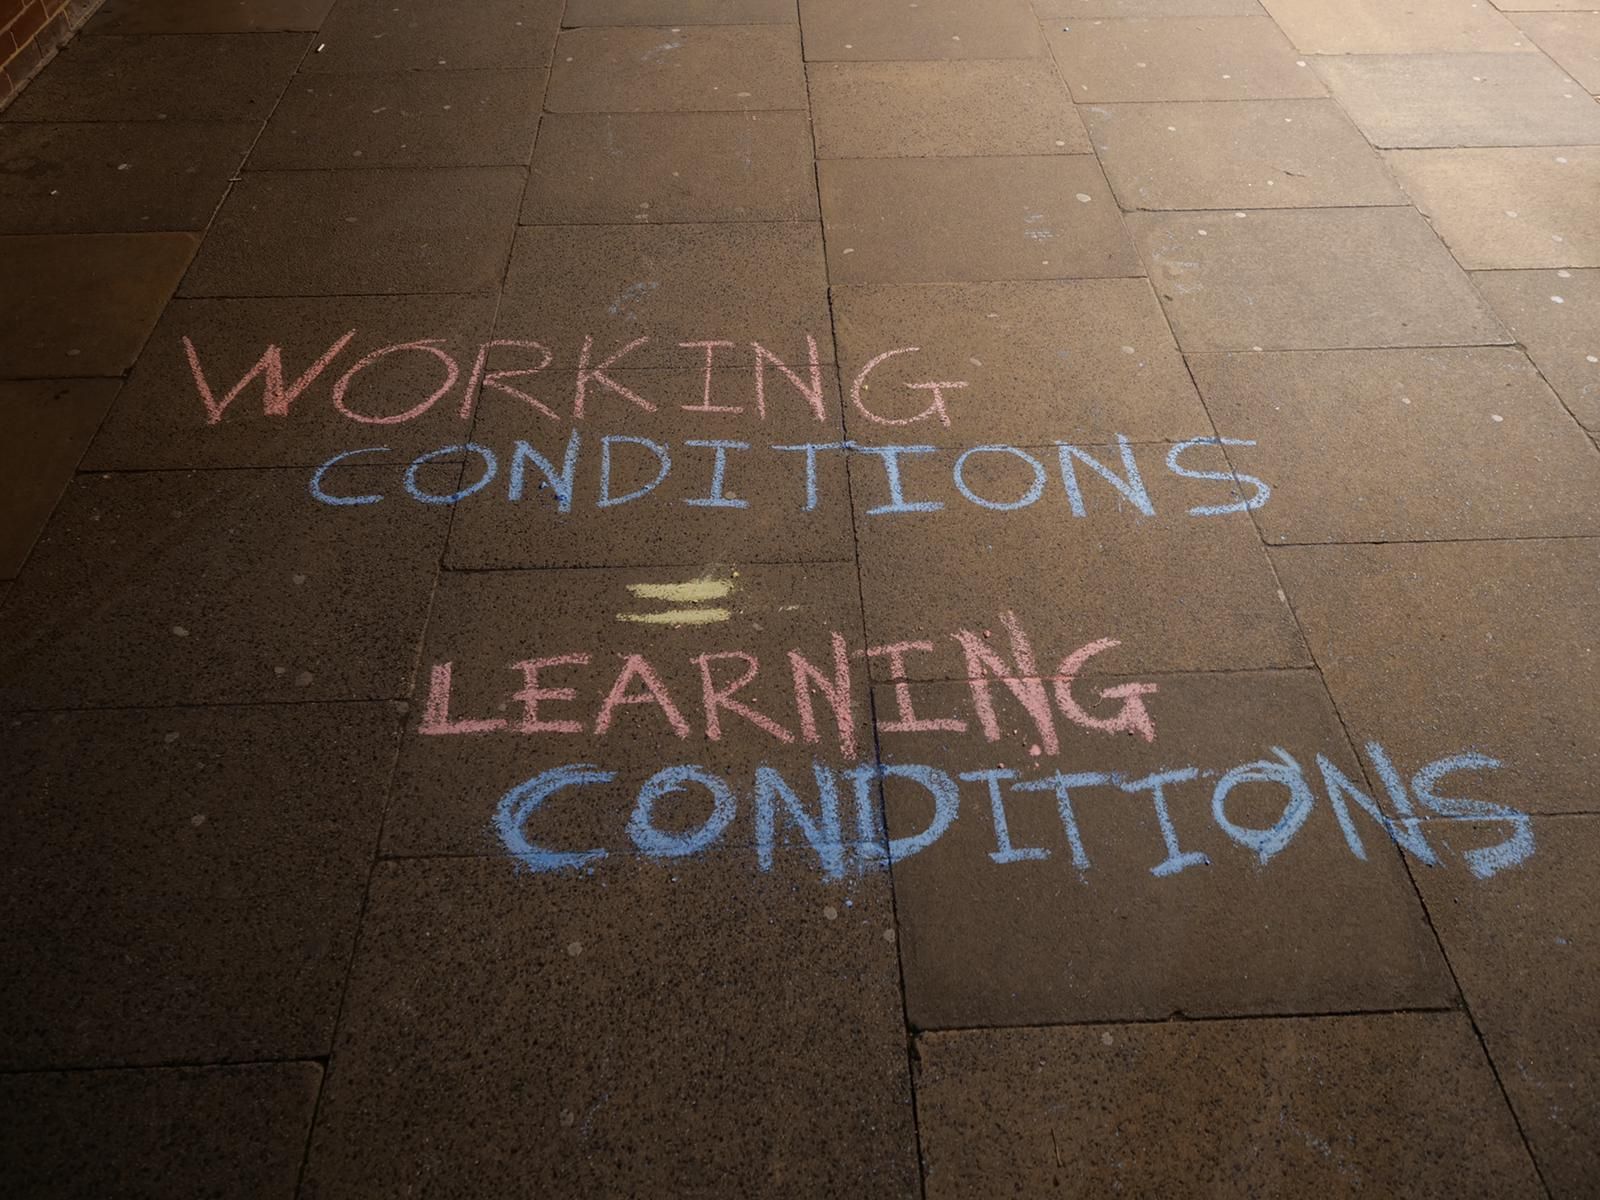 WORKING
CONDITIONS
=
LEARNING
CONDITIONS